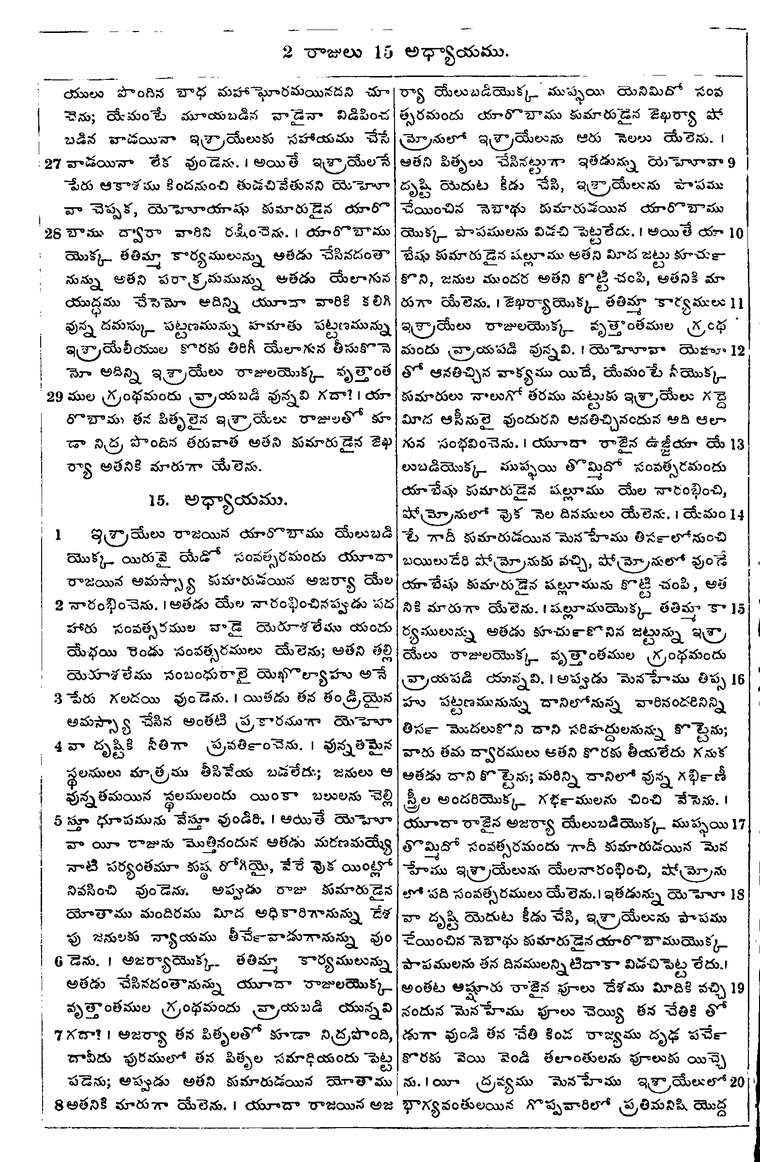 2 రాజులు 15 అధ్యాయము.
యులు పొందిన బాధ మహా ఘోరమయినదని చూ
చెను; యేమంటే మూయబడిన వాడైనా విడిపించ
బడిన వాడయినా ఇశ్రాయేలుకు సహాయము చేసే
27 వాడయినా లేక వుండెను. । అయితే ఇశ్రాయేలనే
పేరు ఆకాశము కిందనుంచి తుడచివేతునని యెహో
వా చెప్పక, యెహోయాషు కుమారుడైన యారొ
28 బాము ద్వారా వారిని రక్షించెను. । యారొబాము
యొక్క తతిమ్మా కార్యములున్ను అతడు చేసినదంతా
నున్ను అతని పరాక్రమమున్ను అతడు యేలాగున
యుద్ధము చేసెనో అదిన్ని యూదా వారికి కలిగి
వున్న దమస్కు పట్టణమున్ను హమాతు పట్టణమున్ను
ఇశ్రాయేలీయుల కొరకు తిరిగీ యేలాగున తీసుకొనె
నో అదిన్ని ఇశ్రాయేలు రాజులయొక్క వృత్తాంత
29 ముల గ్రంథమందు వ్రాయబడి వున్నవి గదా? । యా
రొబాము తన పితృలైన ఇశ్రాయేలు రాజులతో కూ
డా నిద్ర పొందిన తరువాత అతని కుమారుడైన జెఖ
ర్యా అతనికి మారుగా యేలెను.
15. అధ్యాయము.
1 ఇశ్రాయేలు రాజయిన యారొబాము యేలుబడి
యొక్క యిరువై యేడో సంవత్సరమందు యూదా
రాజయిన అమస్స్యా కుమారుడయిన అజర్యా యేల
2 నారంభించెను. । అతడు యేల నారంభించినప్పుడు పద
హారు సంవత్సరముల వాడై యెరూశలేము యందు
యేభయి రెండు సంవత్సరములు యేలెను; అతని తల్లి
యెరూశలేము సంబంధురాలై యెఖొల్యాహు అనే
3 పేరు గలదయి వుండెను. । యితడు తన తండ్రియైన
అమస్స్యా చేసిన అంతటి ప్రకారముగా యెహో
4 వా దృష్టికి నీతిగా ప్రవర్తించెను. । వున్నతమైన
స్థలములు మాత్రము తీసివేయ బడలేదు; జనులు ఆ
వున్నతమయిన స్థలములందు యింకా బలులను చెల్లి
5 స్తూ ధూపమును వేస్తూ వుండిరి. । అయితే యెహో
వా యీ రాజును మొత్తినందున అతడు మరణమయ్యే
నాటి పర్యంతమూ కుష్ఠ రోగియై, వేరే వుక యింట్లో
నివసించి వుండెను. అప్పుడు రాజు కుమారుడైన
యోతాము మందిరము మీద అధికారిగానున్ను దేశ
పు జనులకు న్యాయము తీర్చేవాడుగానున్ను వుం
6 డెను. । అజర్యాయొక్క తతిమ్మా కార్యములున్ను
అతడు చేసినదంతానున్ను యూదా రాజులయొక్క
వృత్తాంతముల గ్రంథమందు వ్రాయబడి యున్నవి
7 గదా? । అజర్యా తన పితృలతో కూడా నిద్రపొంది,
దావీదు పురములో తన పితృల సమాధియందు పెట్ట
పడెను; అప్పుడు అతని కుమారుడయిన యోతాము
8 అతనికి మారుగా యేలెను. । యూదా రాజయిన అజ
ర్యా యేలుబడియొక్క ముప్ఫయి యెనిమిదో సంవ
త్సరమందు యారొబాము కుమారుడైన జెఖర్యా షో
మ్రోనులో ఇశ్రాయేలును ఆరు నెలలు యేలెను. ।
అతని పితృలు చేసినట్టుగా ఇతడున్ను యెహోవా 9
దృష్టి యెదుట కీడు చేసి, ఇశ్రాయేలును పాపము
చేయించిన నెబాథు కుమారుడయిన యారొబాము
యొక్క పాపములను విడచి పెట్టలేదు. । అయితే యా 10
బేషు కుమారుడైన షల్లూము అతని మీద జట్టు కూర్చు
కొని, జనుల ముందర అతని కొట్టి చంపి, అతనికి మా
రుగా యేలెను. । జెఖర్యాయొక్క తతిమ్మా కార్యములు 11
ఇశ్రాయేలు రాజులయొక్క వృత్తాంతముల గ్రంథ
మందు వ్రాయపడి వున్నవి. । యెహోవా యెహూ 12
తో ఆనతిచ్చిన వాక్యము యిదే, యేమంటే నీయొక్క
కుమారులు నాలుగో తరము మట్టుకు ఇశ్రాయేలు గద్దె
మీద ఆసీనులై వుందురని ఆనతిచ్చినందున అది ఆలా
గున సంభవించెను. । యూదా రాజైన ఉజ్జీయా యే 13
లుబడియొక్క ముప్ఫయి తొమ్మిదో సంవత్సరమందు
యాబేషు కుమారుడైన షల్లూము యేల నారంభించి,
షోమ్రోనులో వుక నెల దినములు యేలెను. । యేమం 14
టే గాదీ కుమారుడయిన మెనహేము తిర్సలోనుంచి
బయిలుదేరి షోమ్రోనుకు వచ్చి, షోమ్రోనులో వుండే
యాబేషు కుమారుడైన షల్లూమును కొట్టి చంపి, అత
నికి మారుగా యేలెను. । షల్లూముయొక్క తతిమ్మా కా 15
ర్యములున్ను అతడు కూర్చుకొనిన జట్టున్ను ఇశ్రా
యేలు రాజులయొక్క వృత్తాంతముల గ్రంథమందు
వ్రాయపడి యున్నవి. । అప్పుడు మెనహేము తిప్స 16
హు పట్టణమునున్ను దానిలోనున్న వారినందరినిన్ని
తిర్స మొదలుకొని దాని సరిహద్దులనున్ను కొట్టెను;
వారు తమ ద్వారములు అతని కొరకు తీయలేదు గనుక
ఆతడు దాని కొట్టెను; మరిన్ని దానిలో వున్న గర్భిణీ
స్త్రీల అందరియొక్క గర్భములను చించి వేసెను. ।
యూదా రాజైన అజర్యా యేలుబడియొక్క ముప్ఫయి 17
తొమ్మిదో సంవత్సరమందు గాదీ కుమారుడయిన మెన
హేము ఇశ్రాయేలును యేలనారంభించి, షోమ్రోను
లో పది సంవత్సరములు యేలెను. । ఇతడున్ను యెహో 18
వా దృష్టి యెదుట కీడు చేసి, ఇశ్రాయేలును పాపము
చేయించిన నెబాథు కుమారుడైన యారొబాముయొక్క
పాపములను తన దినములన్నిటిదాకా విడచిపెట్ట లేదు. ।
అంతట అష్షూరు రాజైన పూలు దేశము మీదికి వచ్చి 19
నందున మెనహేము పూలు చెయ్యి తన చేతికి తో
డుగా వుండి తన చేతి కింద రాజ్యము దృఢ పర్చే
కొరకు వెయి వెండి తలాంతులను పూలుకు యిచ్చె
ను. । యీ ద్రవ్యము మెనహేము ఇశ్రాయేలులో 20
భాగ్యవంతులయిన గొప్పవారిలో ప్రతిమనిషి యొద్ద